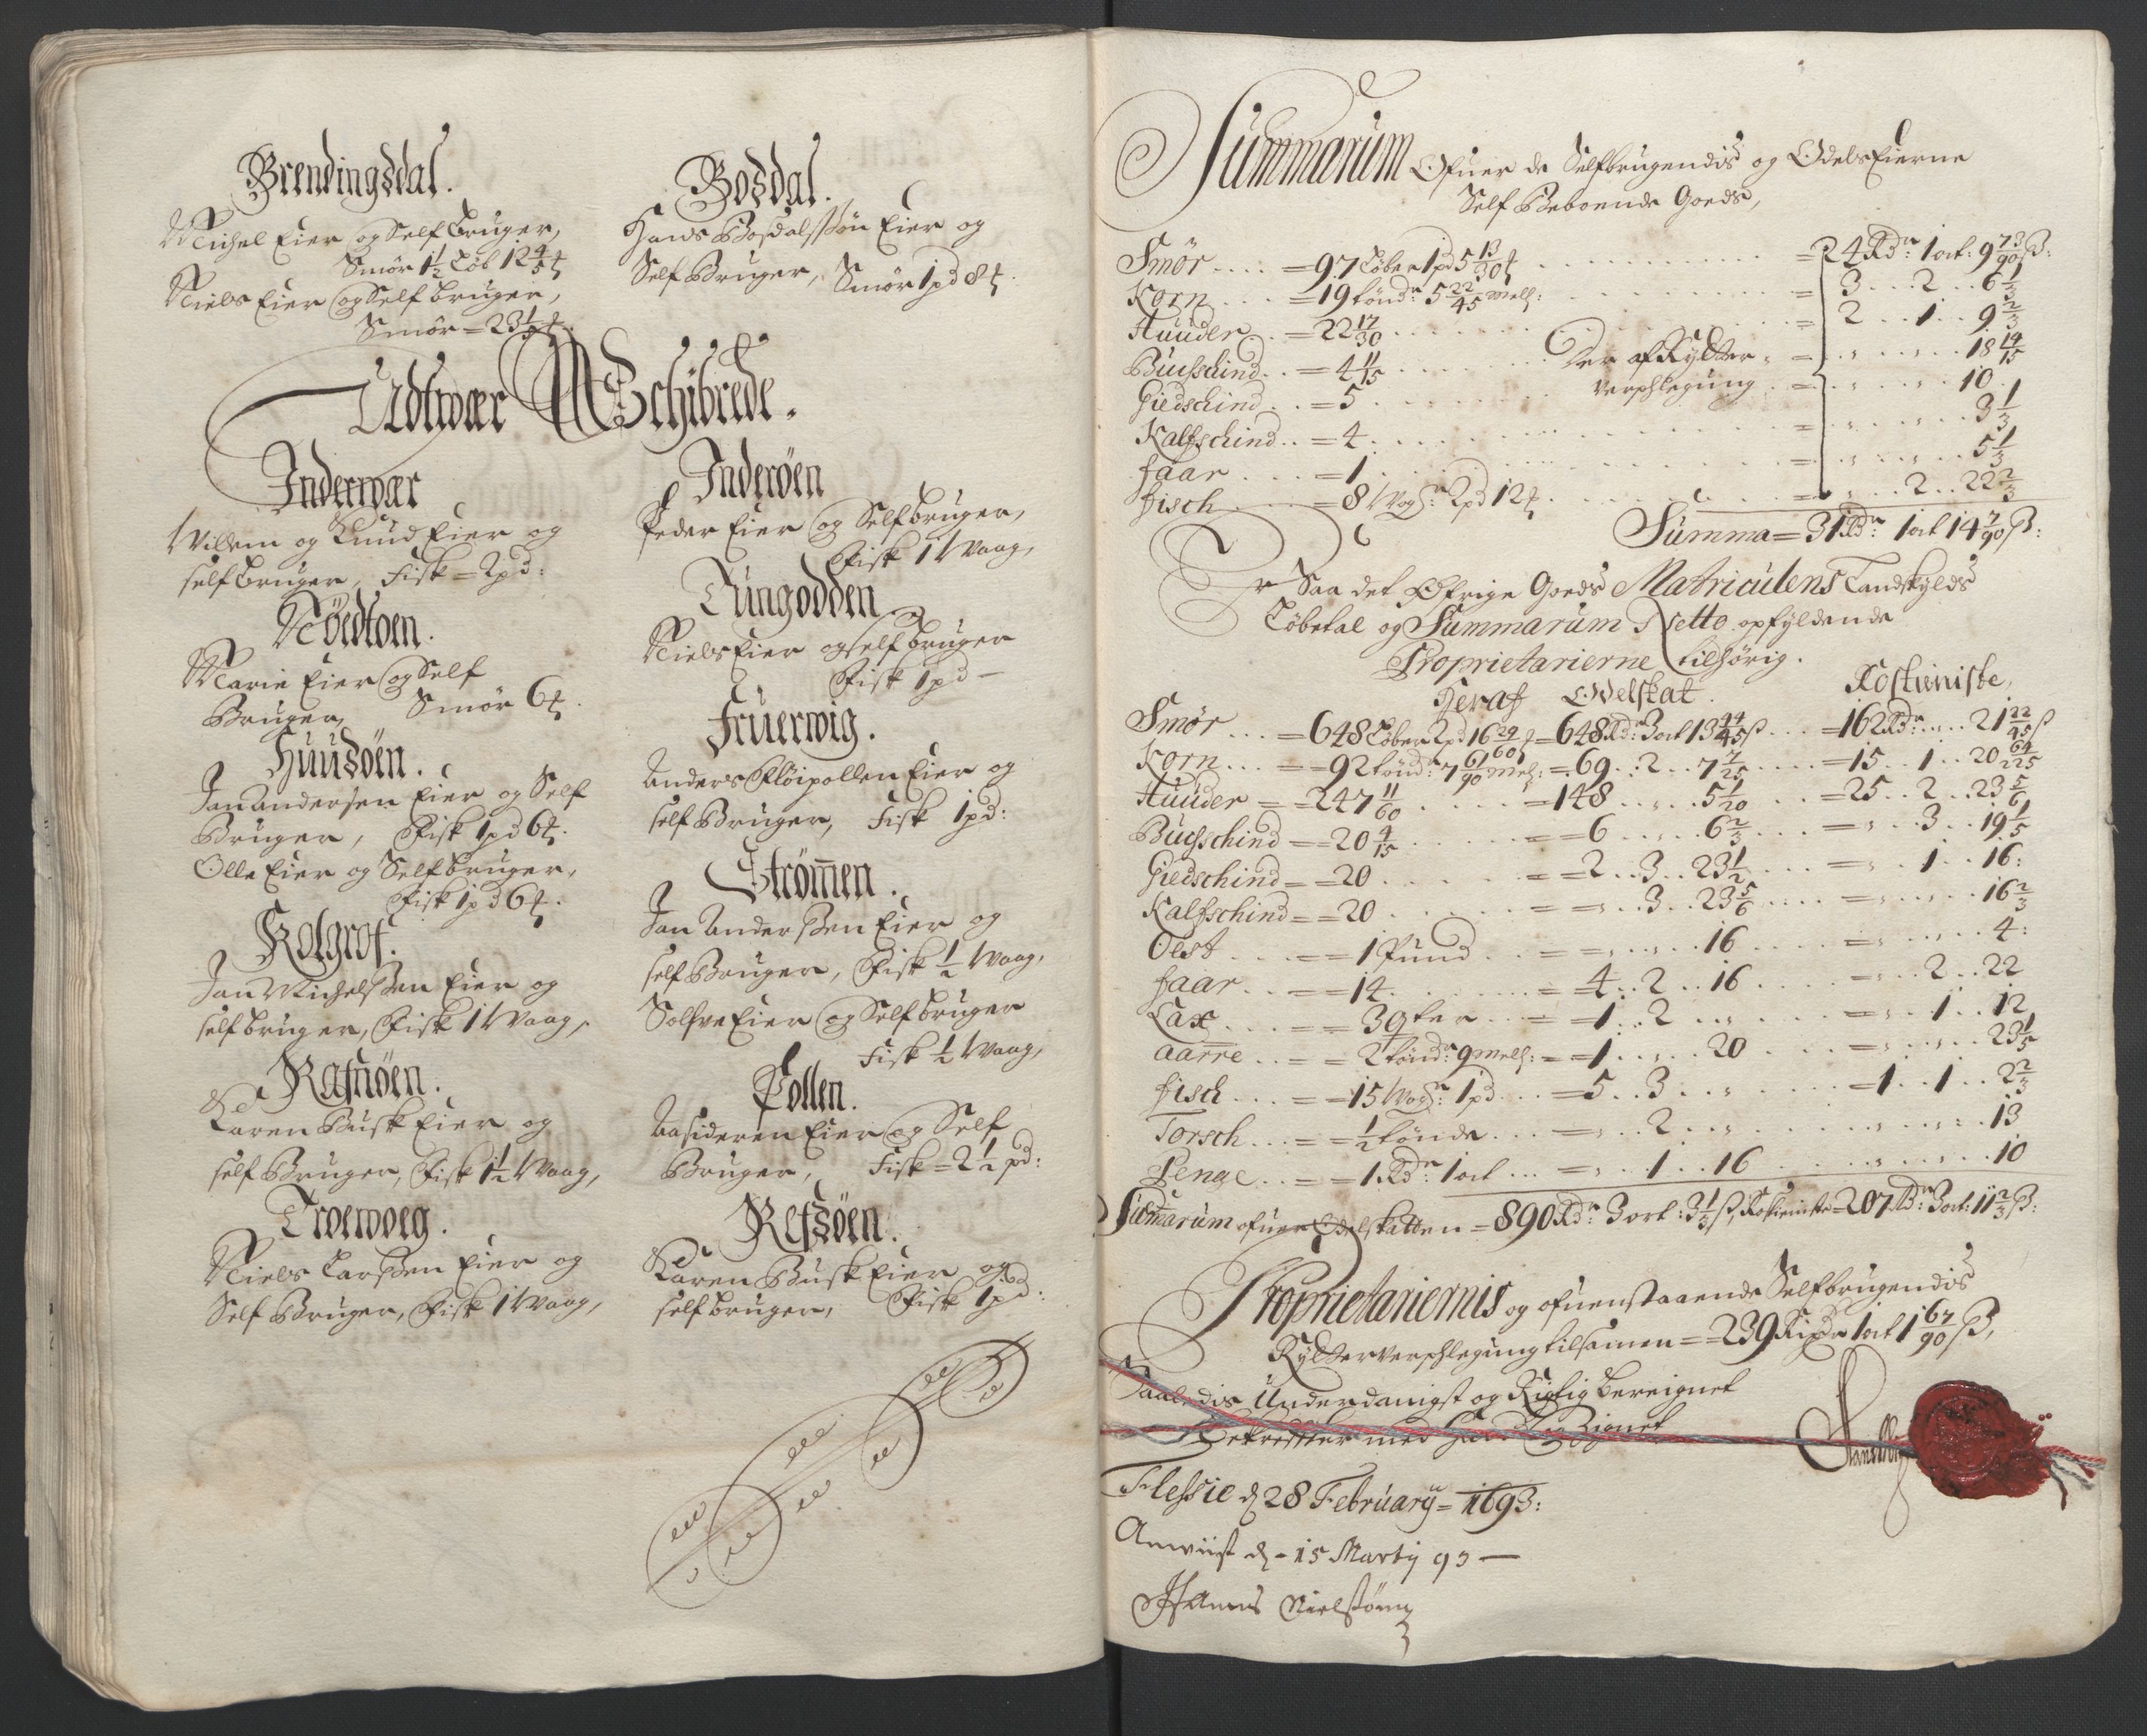 Brendingsdal.
Michel Eier og Self Bruger,
Smör 1½ Löb 12 4/5 ℔
Niels Eier og Self bruger,
Smör = 23
Bosdal.
Hans Bosdalssön Eier og
Self Bruger, Smör 1 pd 8 ℔.
Udtwær Schibrede.
Inderwær
Willem og Knud Eier og
self bruger, Fisk = 2 pd:
Röedtoen.
Marie Eier og Self
Bruger, Smör 6 ℔.
Huusöen.
Jan Andersen Eier og Self
Bruger, Fisk 1 pd 6 ℔.
Olle Eier og Self bruger,
Fisk 1 pd 6 ℔.
Kolgrof.
Jan Michelssen Eier og
self bruger, Fisk 1 Waag,
Rafnöen.
Karen Busk Eier og
self Bruger, Fisk 1½ Waag,
Troewoeg.
Niels Larssen Eier og
Self Bruger, Fisk 1 Waag,
Inderöen
Peder Eier og Self bruger,
Fisk 1 Waag,
Tungodden
Niels Eier og self bruger
Fisk 1 pd –
Fruerwig.
Anders Flöipollen Eier og
self Bruger, Fisk 1 pd:
Strömen.
Jan Anderssen Eier og
self Bruger, Fisk ½ Waag,
Solfve Eier og Self bruger
Fisk ½ Waag,
Pollen.
Eier og Self
Bruger, Fisk = 2½ pd:
Refsöen.
Karen Busk Eier og
self bruger, Fisk 1 pd:
Summarum Ofuer de Selfbrugendis og Odels Eierne
Self Beboende Goeds,
Smör .... = 97 Löber 1 pd 5 13/30 ℔ ..... = 24 Rdr: 1 ort: 9 73/90 ß:
Korn ... = 19 töndr 5 22/45 mell: ..... = 3 .. 2 .. 6 1/3
Huuder .. = 22 17/30 ..... = 2 .. 1 .. 9 2/3
Buchschind .. = 4 11/15 ..... Der af Rytter = „ .. „ .. 18 14/15
Giedschind .. = 5 ..... verphlegung = „ .. „ .. 10.
Kalfschind .. = 4 ..... = „ .. „ .. 3 1/3
faar .... = 1 ..... = „ .. „ .. 5 1/3
fisch .... = 8 Wogr: 2 pd 12 ℔ ..... = „ .. 2 .. 22 2/3
Summa = 31 Rdr 1 ort 14 7/90 ß:
Er Saa det Öfrige Goeds Matriculens Landskylds
Löbetal og Summarum Netto opfyldende
Proprietarierne tilhörig.
Heraf Odelskat. Rostieniste,
Smör ... = 648 Löber 2 pd 16 29/60 ℔ = 648 Rdr: 3 ort 13 44/45 ß ... = 162 Rdr .. „ .. 21 22/45 ß
Korn ... = 92 töndr 7 61/90 mel: = 69 .. 2 .. 7 7/25 .... = 15 .. 1 .. 20 64/225
Huuder = = 247 11/60 .... = 148 .. „ .. 5 1/20 ... = 25 .. 2 .. 23 5/6
Buchschind = = 20 4/15 .... = 6 .. „ .. 6 2/3 .... = „ .. 3 .. 19 1/5
Giedschind = = 20 .... = 2 .. 3 .. 23 1/2 .... = „ .. 1 .. 16:
Kalfschind = = 20 .... = „ .. 3 .. 23 5/6 .... = „ .. „ .. 16 2/3
Oest .... = = 1 Pund .. = „ .. „ .. 16 .... = „ .. „ .. 4:
faar ... = = 14 .... = 4 .. 2 .. 16 .... = „ .. 2 .. 22
Lax .... = = 3 qter ... = 1 .. 2 .. „ .... = „ .. 1 .. 12
aarre .. = = 2 töndr 9 mell: = 1 .. „ .. 20 .... = „ .. „ .. 23 1/5
fisch ... = = 15 Wogr: 1 pd ... = 5 .. 3 .. „ .... = 1 .. 1 .. 2 2/3
Torsch ... = = ½ tönde ... = „ .. 2 .. „ .... „ .. „ .. 13
Penge .. = = 1 Rdr 1 ort ... = „ .. 1 .. 16 .... „ .. „ .. 10
Summarum ofuer Odelskatten = 890 Rdr 3 ort: 3 1/3 ß, Rostieniste = 207 Rdr 3 ort: 11 2/3 ß:
Proprietariernis og ofuenstaaende Selfbrugendis
Rytterverphlegung tilsamen = = 239 Rixdr 1 ort 1 67/90 ß,
Saaledis Underdanigst og Rigtig bereignet
Bekreffter med Haand og Zignet
Flessie d 28 February = 1693:
Anwiist d – 15 Marty 93 –
Hanns Nielssönn